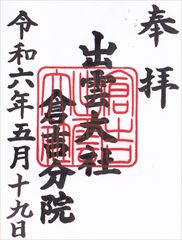 奉拝
出雲大社
倉吉分院
令和六年五月十九日